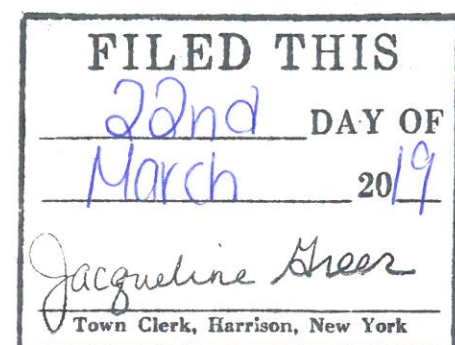 FILED THIS
22nd DAY OF
March 2019
Jacqueline Greer
Town Clerk, Harrison, New York